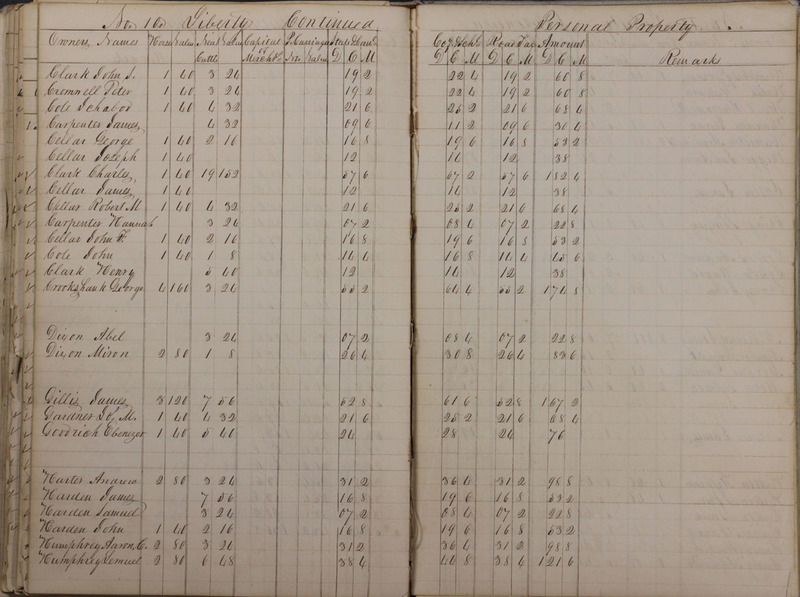 No. 10 Liberty Continued Personal Property.
Owners Names Horses Value Neat Value Capital P. Carriages State & Canal Co. & Schl. Road Tax Amount
Cattle Merchts No. Value D C M D C M D C M D C M Remarks
Clark John S. 1 40 3 24 19 2 22 4 19 2 60 8
Cromwell Peter 1 40 3 24 19 2 22 4 19 2 60 8
Cole Ichabod 1 40 4 32 21 6 25 2 21 6 68 4
Carpenter James 4 32 09 6 11 2 09 6 30 4
Cellar George 1 40 2 16 16 8 19 6 16 8 53 2
Cellar Joseph 1 40 12 14 12 38
Clark Charles 1 40 19 152 57 6 67 2 57 6 182 4
Cellar James 1 40 12 14 12 38
Cellar Robert M 1 40 4 32 21 6 25 2 21 6 68 4
Carpenter Hannah 3 24 07 2 08 4 07 2 22 8
Cellar John F. 1 40 2 16 16 8 19 6 16 8 53 2
Cole John 1 40 1 8 14 4 16 8 14 4 45 6
Clark Henry 5 40 12 14 12 38
Crookshank George 4 160 3 24 55 2 64 4 55 2 174 8
Dixon Abel 3 24 07 2 08 4 07 2 22 8
Dixon Miron 2 80 1 8 26 4 30 8 26 4 83 6
Gillis James 3 120 7 56 52 8 61 6 52 8 167 2
Gardner Jos. M. 1 40 4 32 21 6 25 2 21 6 68 4
Goodrich Ebenezer 1 40 5 40 24 28 24 76
Harter Andrew 2 80 3 24 31 2 36 4 31 2 98 8
Harden James 7 56 16 8 19 6 16 8 53 2
Harden Samuel 3 24 07 2 08 4 07 2 22 8
Harden John 1 40 2 16 16 8 19 6 16 8 53 2
Humphrey Aaron C. 2 80 3 24 31 2 36 4 31 2 98 8
Humphrey Lemuel 2 80 6 48 38 4 44 8 38 4 121 6